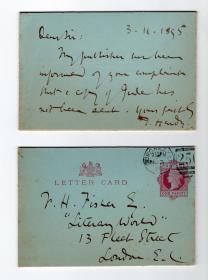 3-11-1895
Dear Sir:
My publisher has been
informed of your complaint
that a copy of Jude has
not been sent. Yours faithfully
T. Hardy
LETTER CARD
W. H. Fisher E
"Literary World"
13 Fleet Street
London. E.C.